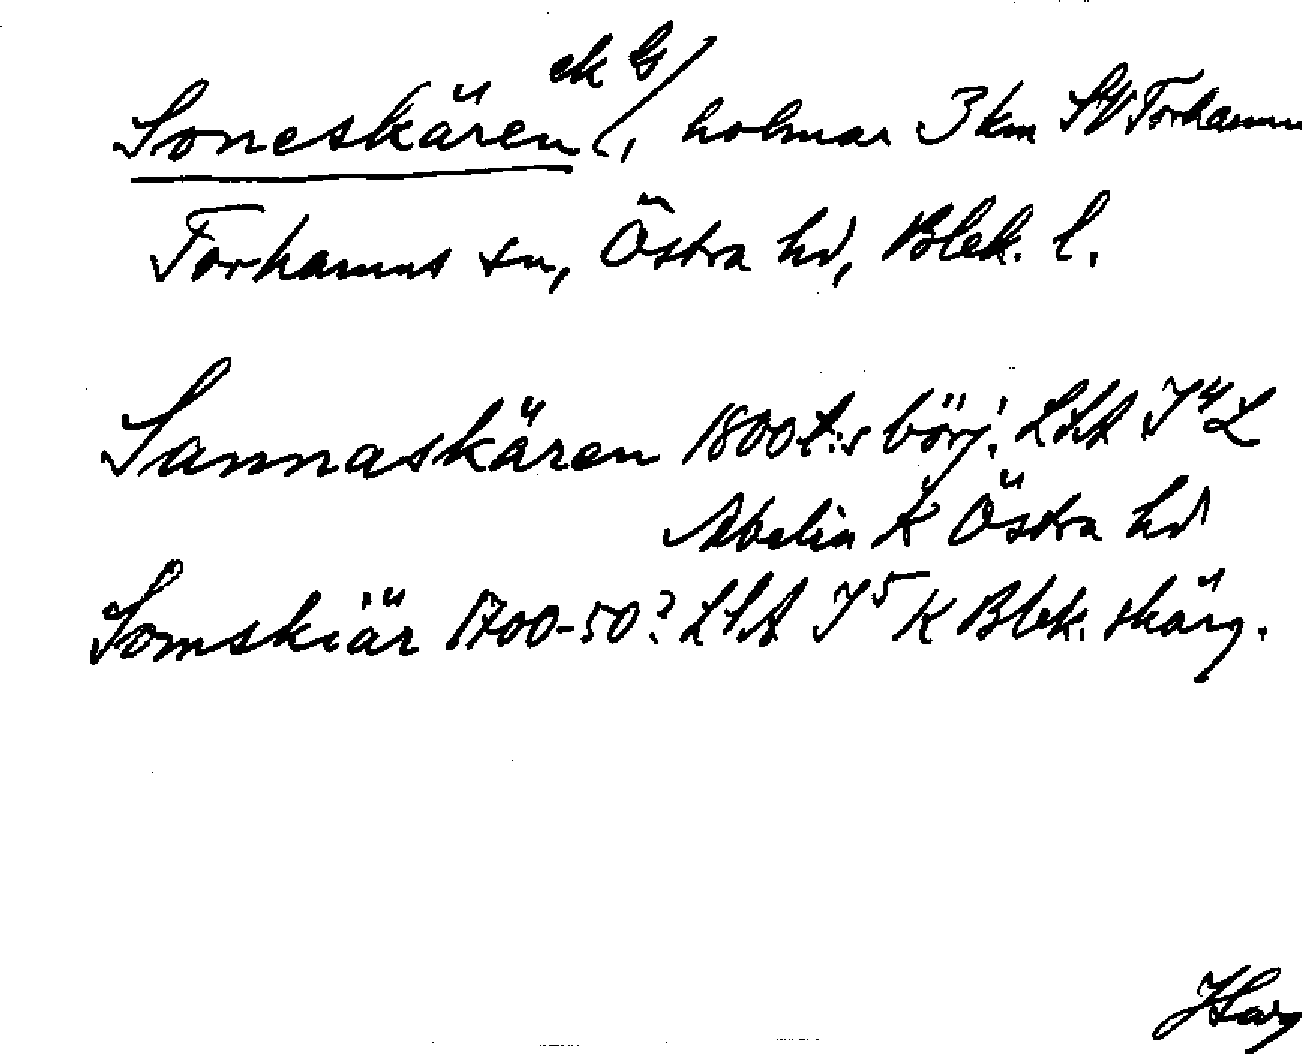 ek G
Soneskären, holmar 3 km SV Torhamn
Torhamns sn, Östra hd, Blek. l.
Sannaskären 1800 t:s börj. LSA J⁴ L
Abelin K Östra hd
Somskiär 1700-50? LSA J⁵ K Blek. skärg.